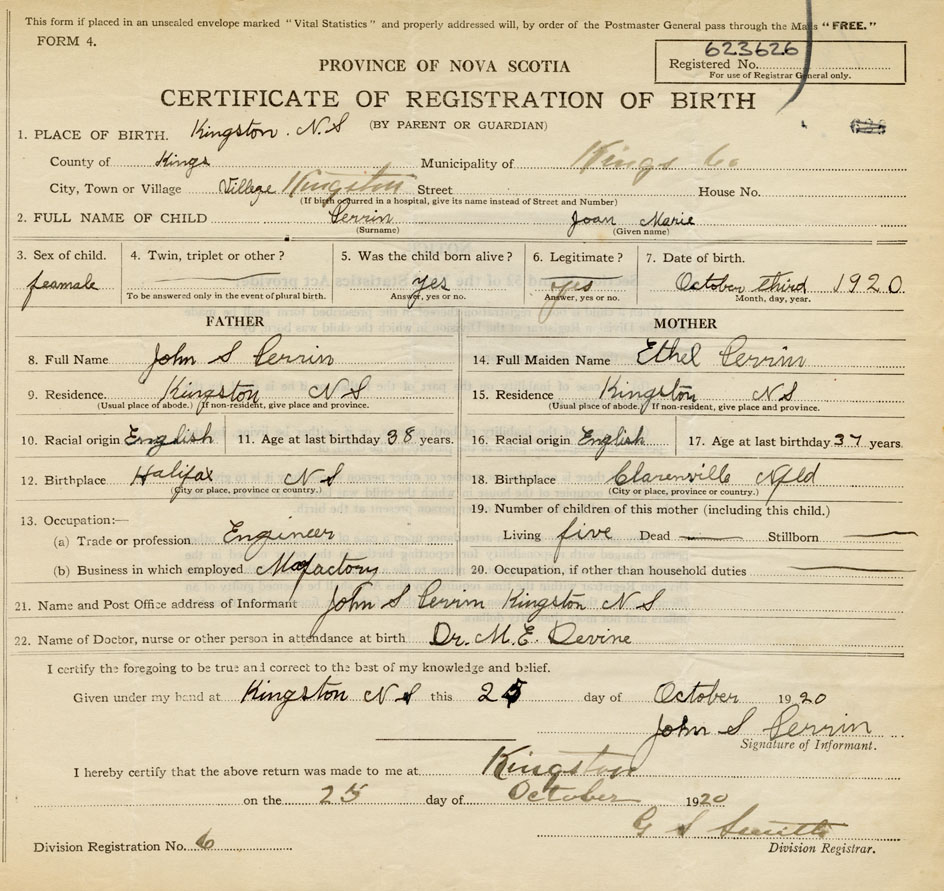 This form if placed in an unsealed envelope marked "Vital Statistics" and properly addressed will, by order of the Postmaster General pass through the Mails "FREE."
FORM 4.
623626
Registered No.
For use of Registrar General only.
PROVINCE OF NOVA SCOTIA
CERTIFICATE OF REGISTRATION OF BIRTH
(BY PARENT OR GUARDIAN)
1. PLACE OF BIRTH. Kingston. N.S
County of Kings Municipality of Kings Co
City, Town or Village Village Kingston Street House No.
(If birth occurred in a hospital, give its name instead of Street and Number)
2. FULL NAME OF CHILD Perrin Joan Marie
(Surname) (Given name)
3. Sex of child. 4. Twin, triplet or other? 5. Was the child born alive? 6. Legitimate? 7. Date of birth.
feamale yes yes October third 1920
To be answered only in the event of plural birth. Answer, yes or no. Answer, yes or no. Month, day, year.
FATHER MOTHER
8. Full Name John S Perrin 14. Full Maiden Name Ethel Perrin
9. Residence. Kingston N S 15. Residence Kingston N S
(Usual place of abode.) (If non-resident, give place and province. (Usual place of abode.) If non-resident, give place and province.
10. Racial origin English 11. Age at last birthday 38 years. 16. Racial origin English 17. Age at last birthday 37 years.
12. Birthplace Halifax N S 18. Birthplace Clarenville Nfld
(City or place, province or country.) (City or place, province or country.)
13. Occupation:— 19. Number of children of this mother (including this child.)
(a) Trade or profession Engineer Living five Dead Stillborn
(b) Business in which employed 20. Occupation, if other than household duties
21. Name and Post Office address of Informant John S Perrin Kingston N S
22. Name of Doctor, nurse or other person in attendance at birth Dr. M. E. Devine
I certify the foregoing to be true and correct to the best of my knowledge and belief.
Given under my hand at Kingston N S this 25 day of October 1920
John S Perrin
Signature of Informant.
I hereby certify that the above return was made to me at Kingston
on the 25 day of October 1920
G S Smith
Division Registration No. 6 Division Registrar.